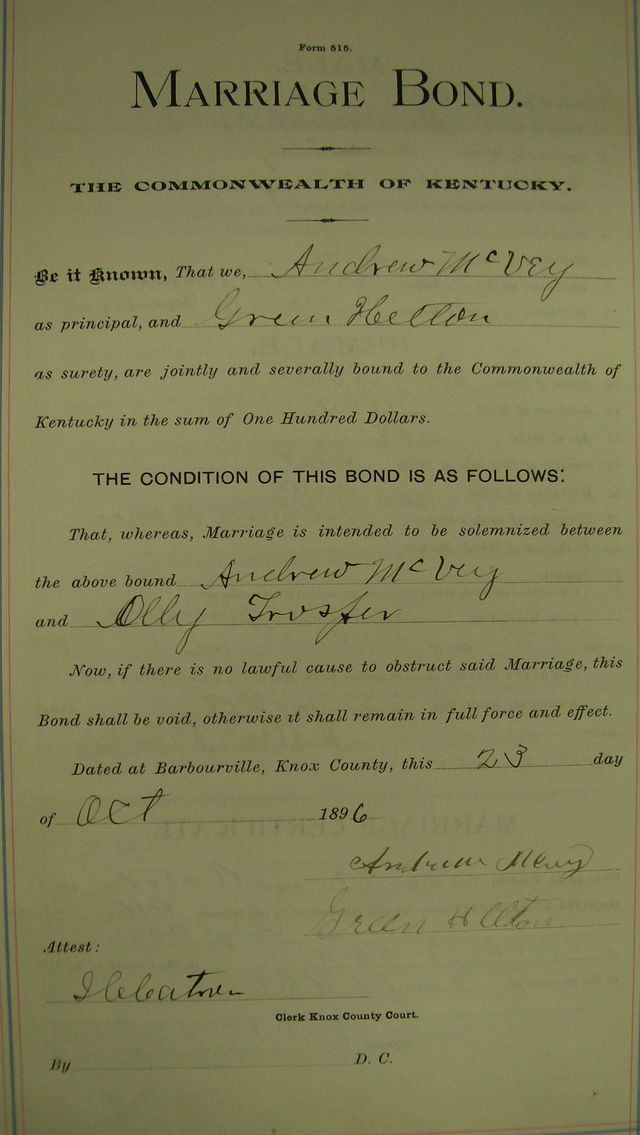 Form 515.
MARRIAGE BOND.
THE COMMONWEALTH OF KENTUCKY.
Be it Known, That we, Andrew McVey
as principal, and Green Helton
as surety, are jointly and severally bound to the Commonwealth of
Kentucky in the sum of One Hundred Dollars.
THE CONDITION OF THIS BOND IS AS FOLLOWS:
That, whereas, Marriage is intended to be solemnized between
the above bound Andrew McVey
and Olly Trosper
Now, if there is no lawful cause to obstruct said Marriage, this
Bond shall be void, otherwise it shall remain in full force and effect.
Dated at Barbourville, Knox County, this 23 day
of Oct 1896
Andrew
Green Helton
Attest:
Clerk Knox County Court.
By D. C.